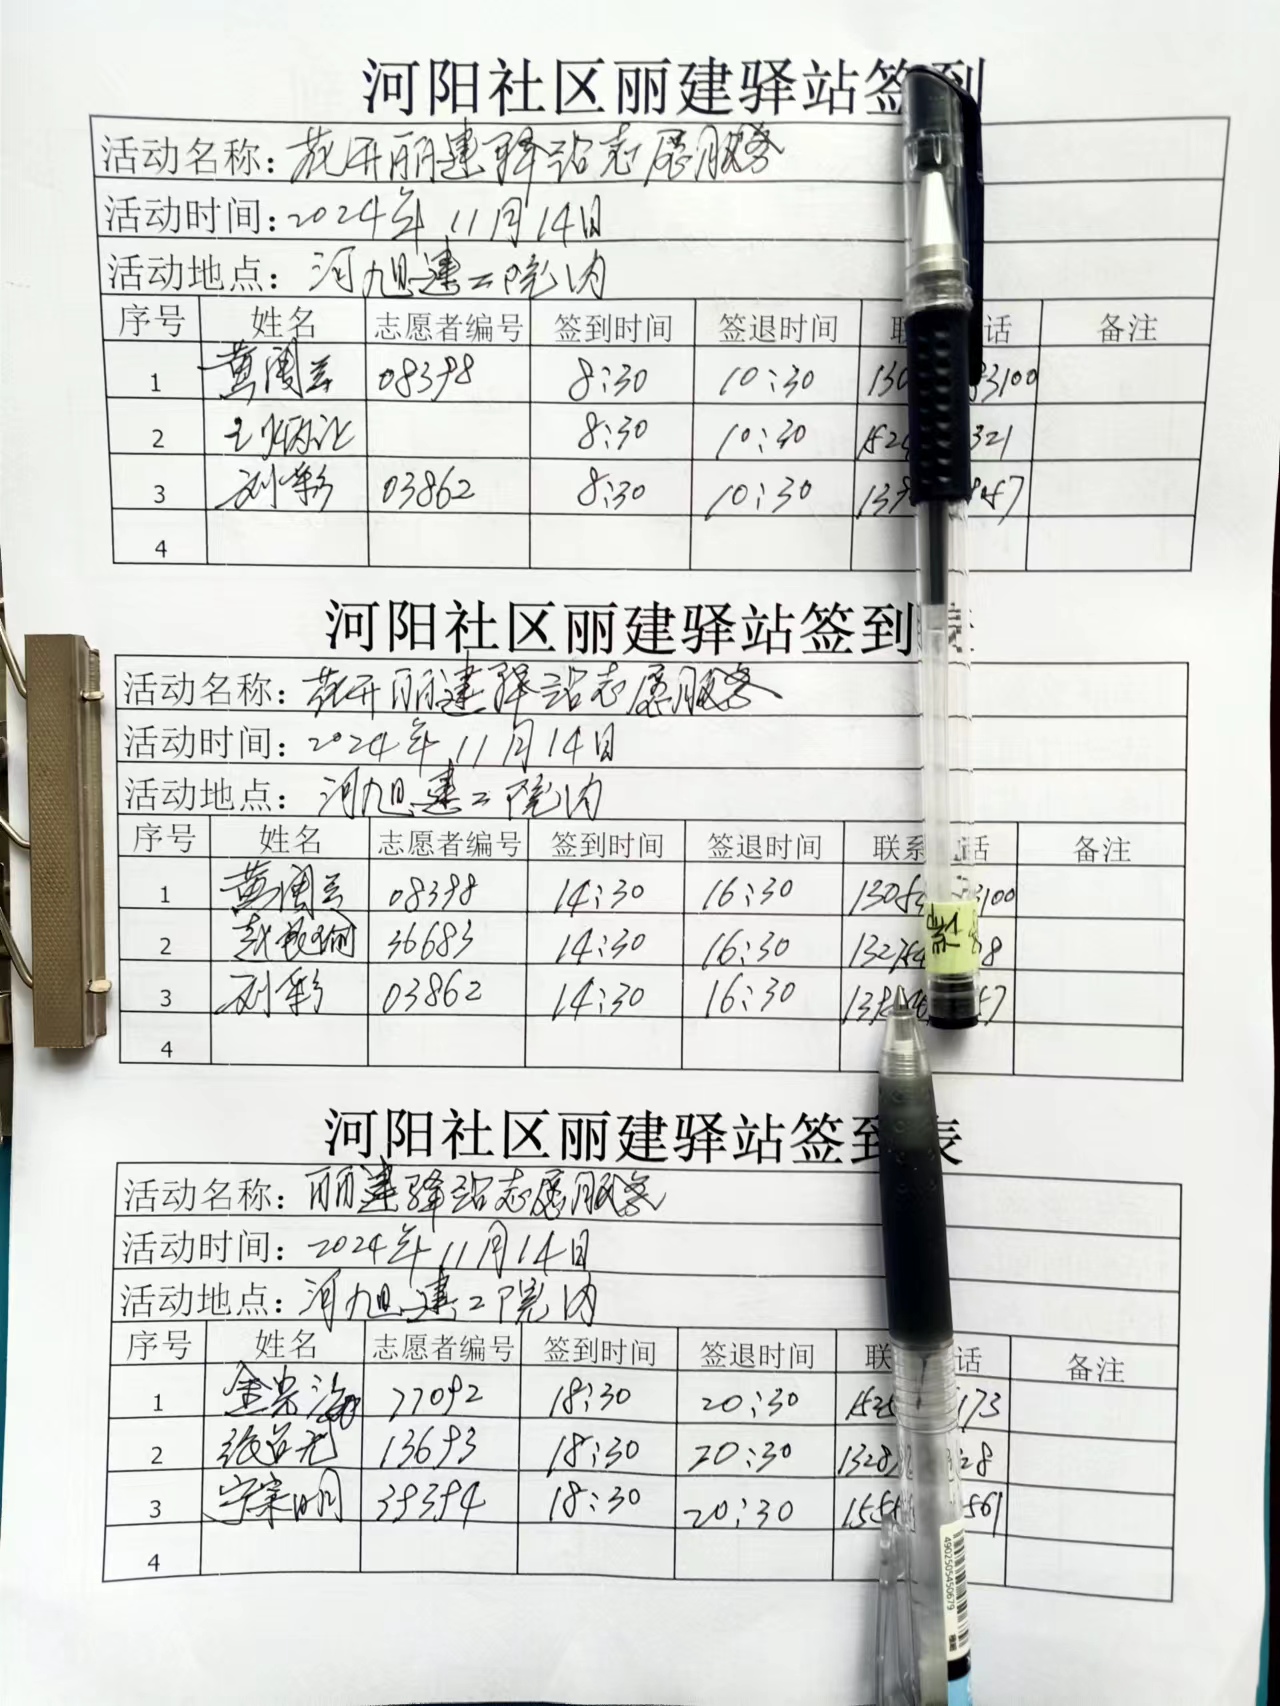 河阳社区丽建驿站签到
活动名称: 花开丽建驿站志愿服务
活动时间: 2024年11月14日
活动地点: 河旭建工院内
序号 姓名 志愿者编号 签到时间 签退时间 联 话 备注
1 黄闺云 08398 8:30 10:30 130 83100
2 8:30 10:30 1524 321
3 刘彩 03862 8:30 10:30 138 47
4
河阳社区丽建驿站签到
活动名称: 花开丽建驿站志愿服务
活动时间: 2024年11月14日
活动地点: 河旭建工院内
序号 姓名 志愿者编号 签到时间 签退时间 联系 话 备注
1 黄闺云 08398 14:30 16:30 1305 3100
2 36683 14:30 16:30 132 8
3 刘彩 03862 14:30 16:30 138 57
4
河阳社区丽建驿站签到表
活动名称: 丽建驿站志愿服务
活动时间: 2024年11月14日
活动地点: 河旭建工院内
序号 姓名 志愿者编号 签到时间 签退时间 联 话 备注
1 金岩海 77092 18:30 20:30 152 173
2 13693 18:30 20:30 1328 28
3 宁宗明 39394 18:30 20:30 155 561
4
4902505450679